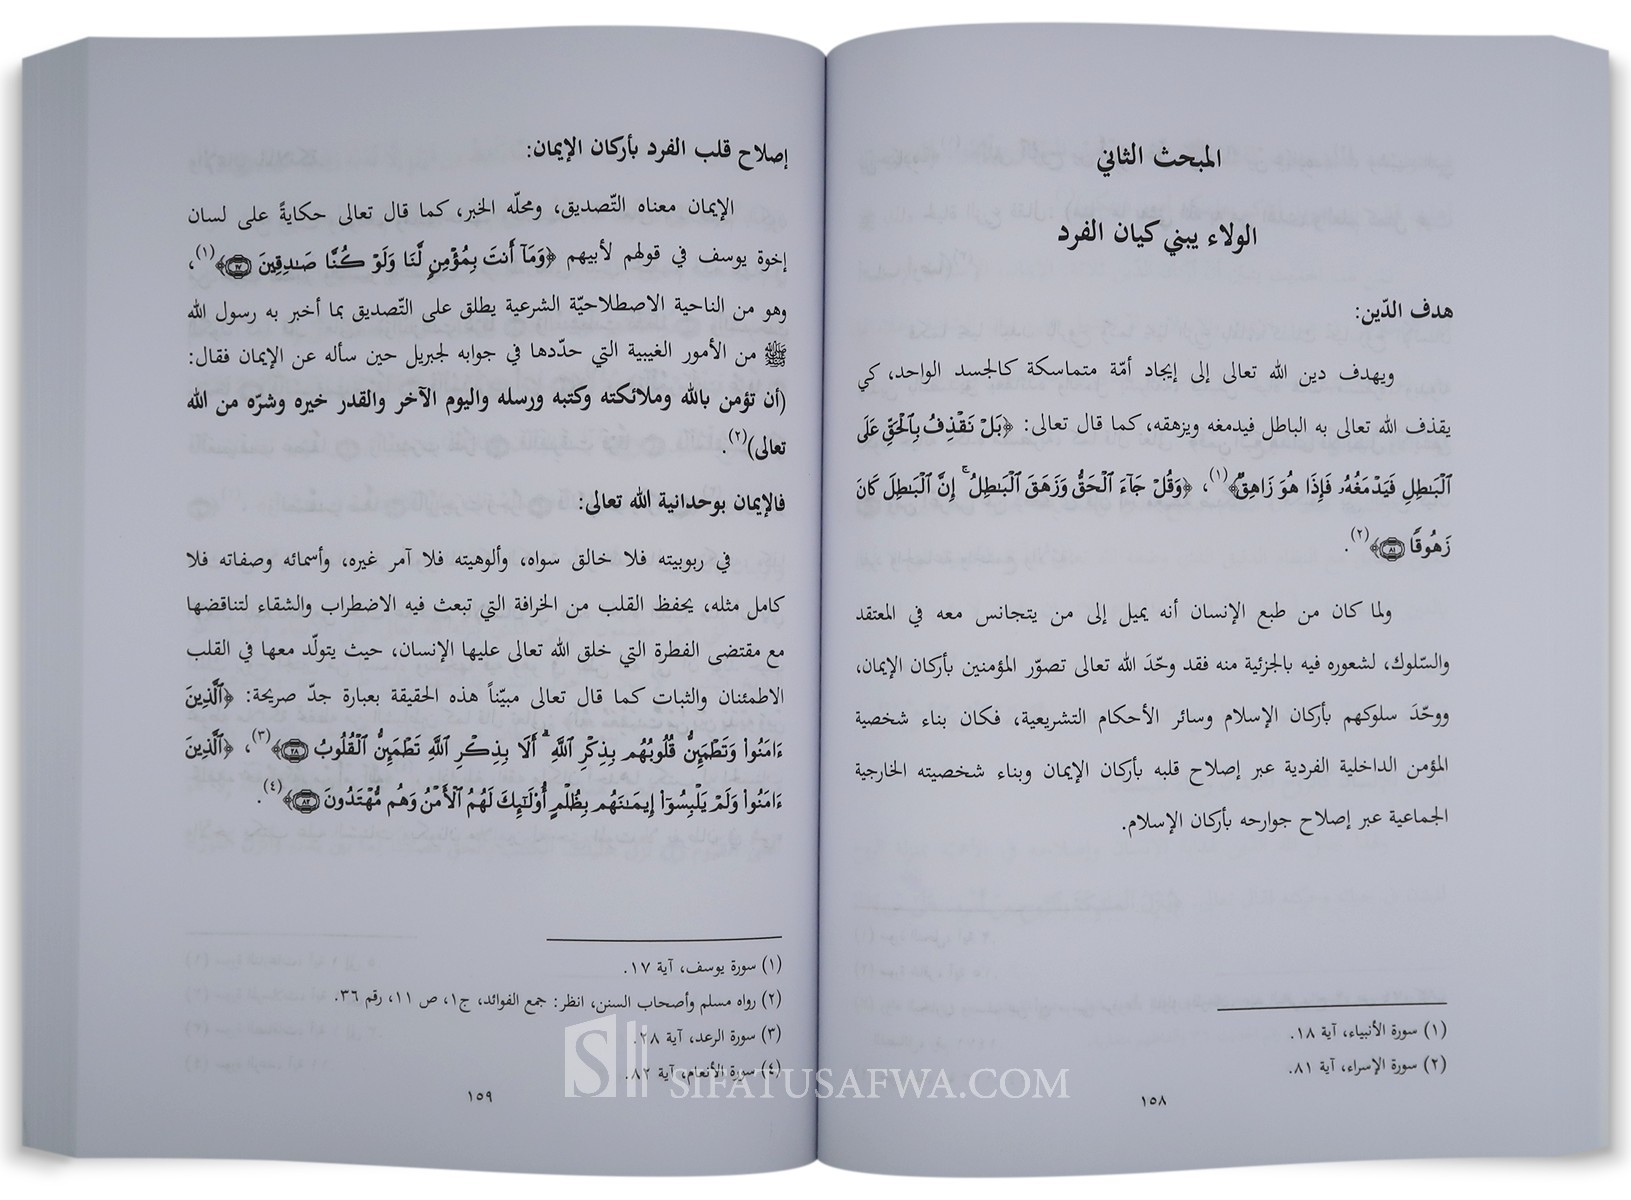 المبحث الثاني
الولاء يبني كيان الفرد
هدف الدّين:
ويهدف دين الله تعالى إلى إيجاد أمّة متماسكة كالجسد الواحد، كي
يقذف الله تعالى به الباطل فيدمغه ويزهقه، كما قال تعالى: ﴿بَلْ نَقْذِفُ بِٱلْحَقِّ عَلَى
ٱلْبَٰطِلِ فَيَدْمَغُهُۥ فَإِذَا هُوَ زَاهِقٌ﴾(١)، ﴿وَقُلْ جَآءَ ٱلْحَقُّ وَزَهَقَ ٱلْبَٰطِلُ ۚ إِنَّ ٱلْبَٰطِلَ كَانَ
زَهُوقًا ٨١﴾(٢).
ولما كان من طبع الإنسان أنه يميل إلى من يتجانس معه في المعتقد
والسّلوك، لشعوره فيه بالجزئية منه فقد وحّدَ الله تعالى تصوّر المؤمنين بأركان الإيمان،
ووحّدَ سلوكهم بأركان الإسلام وسائر الأحكام التشريعية، فكان بناء شخصية
المؤمن الداخلية الفردية عبر إصلاح قلبه بأركان الإيمان وبناء شخصيته الخارجية
الجماعية عبر إصلاح جوارحه بأركان الإسلام.
(١) سورة الأنبياء، آية ١٨.
(٢) سورة الإسراء، آية ٨١.
١٥٨
إصلاح قلب الفرد بأركان الإيمان:
الإيمان معناه التّصديق، ومحلّه الخبر، كما قال تعالى حكايةً على لسان
إخوة يوسف في قولهم لأبيهم ﴿وَمَآ أَنتَ بِمُؤْمِنٍ لَّنَا وَلَوْ كُنَّا صَٰدِقِينَ ١٧﴾(١)،
وهو من الناحية الاصطلاحيّة الشرعية يطلق على التّصديق بما أخبر به رسول الله
ﷺ من الأمور الغيبية التي حدّدها في جوابه لجبريل حين سأله عن الإيمان فقال:
(أن تؤمن بالله وملائكته وكتبه ورسله واليوم الآخر والقدر خيره وشرّه من الله
تعالى)(٢).
فالإيمان بوحدانية الله تعالى:
في ربوبيته فلا خالق سواه، وألوهيته فلا آمر غيره، وأسمائه وصفاته فلا
كامل مثله، يحفظ القلب من الخرافة التي تبعث فيه الاضطراب والشقاء لتناقضها
مع مقتضى الفطرة التي خلق الله تعالى عليها الإنسان، حيث يتولّد معها في القلب
الاطمئنان والثبات كما قال تعالى مبيّناً هذه الحقيقة بعبارة جدّ صريحة: ﴿ٱلَّذِينَ
ءَامَنُوا۟ وَتَطْمَئِنُّ قُلُوبُهُم بِذِكْرِ ٱللَّهِ ۗ أَلَا بِذِكْرِ ٱللَّهِ تَطْمَئِنُّ ٱلْقُلُوبُ ٢٨﴾(٣)، ﴿ٱلَّذِينَ
ءَامَنُوا۟ وَلَمْ يَلْبِسُوٓا۟ إِيمَٰنَهُم بِظُلْمٍ أُو۟لَٰٓئِكَ لَهُمُ ٱلْأَمْنُ وَهُم مُّهْتَدُونَ ٨٢﴾(٤).
(١) سورة يوسف، آية ١٧.
(٢) رواه مسلم وأصحاب السنن، انظر: جمع الفوائد، ج١، ص ١١، رقم ٣٦.
(٣) سورة الرعد، آية ٢٨.
(٤) سورة الأنعام، آية ٨٢.
١٥٩
SIFATUSAFWA.COM